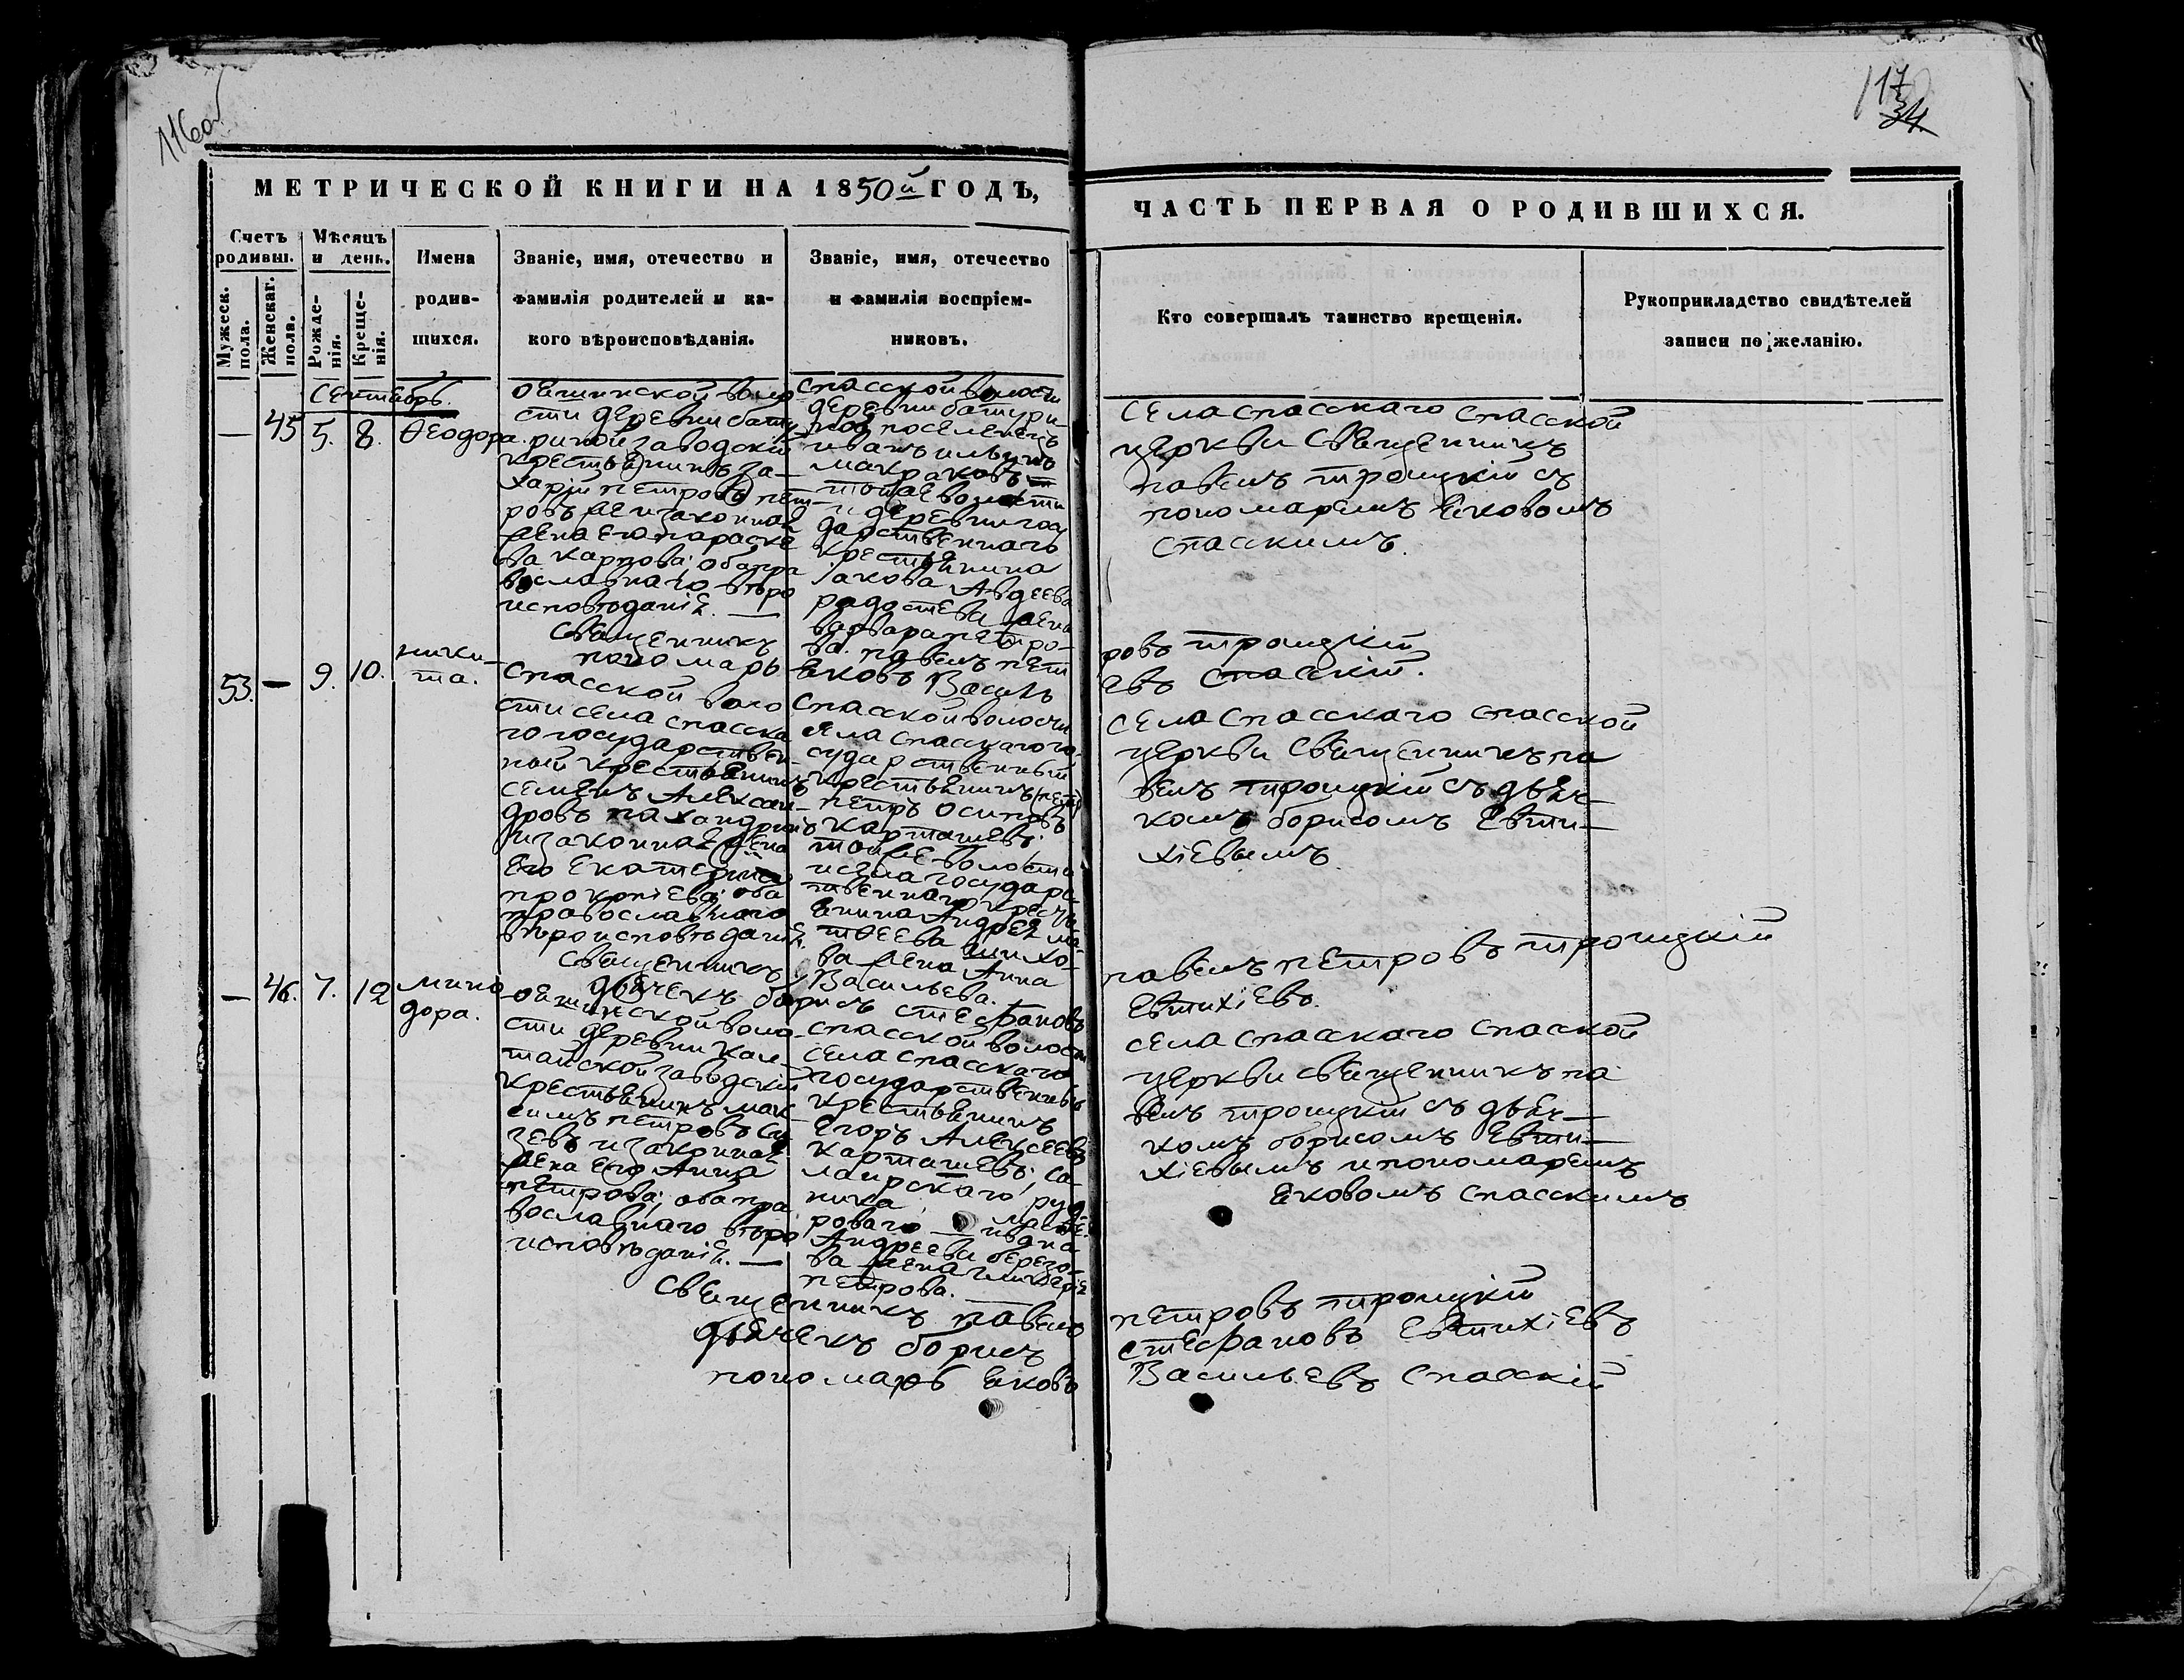 116об
117
34
МЕТРИЧЕСКОЙ КНИГИ НА 1850й ГОДЪ,
ЧАСТЬ ПЕРВАЯ О РОДИВШИХСЯ.
Счетъ родивш.
Мужеск. пола.
Женскаг. пола.
Мѣсяцъ и день.
Рожде-
нія.
Креще-
нія.
Имена
родив-
шихся.
Званіе, имя, отечество и
фамилія родителей и ка-
кого вѣроисповѣданія.
Званіе, имя, отечество
и фамилія воспріем-
никовъ.
Кто совершалъ таинство крещенія.
Рукоприкладство свидѣтелей
записи по желанію.
Сентябрь.
— 45 5. 8. Ѳеодора.
воло-
сти деревни бату
риной заводскій
крестьянинъ за-
харій петровъ пет
ровъ и законная
жена его параске
ва карпова; оба пра
вославнаго вѣро
исповѣданія. —
спасской волости
деревни батури
ной поселенецъ
иванъ ильинъ
макраковъ и
тойже волости
и деревни госу
дарственнаго
крестьянина
іакова Авдеева
радостева жена
варвара петро-
ва.
села спасскаго спасской
церкви священникъ
павелъ троицкій съ
пономаремъ яковомъ
спасскимъ.
священникъ павелъ пет
ровъ троицкій
пономарь яковъ Василь
евъ спасскій.
53. — 9. 10. ники-
та.
Спасской воло
сти села спасска
го государствен-
ной крестьянинъ
семенъ Алексан-
дровъ
и законная жена
его екатерина
прокопіева; оба
православнаго
вѣроисповѣданія.
Спасской волости
села спасскаго го-
сударственный
крестьянинъ
петръ осиповъ
карташевъ;
тойже волости
и села государс
твеннаго крестья
янина Андрея ма-
твеева
ва жена Анна
Васильева.
села спасскаго спасской
церкви священникъ па
велъ троицкій съ дьяч-
комъ борисомъ Евти-
хіевымъ
священникъ
павелъ петровъ троицкій
дьячекъ борисъ стефановъ
Евтихіевъ.
— 46. 7. 12 мино
дора.
воло-
сти деревни кал
тайской заводскій
крестьянинъ мак
симъ петровъ
зевъ и законная
жена его Анна
петрова; оба пра
вославнаго вѣро
исповѣданія. —
спасской волости
села спасскаго
государственный
крестьянинъ
Егоръ Алексеевъ
карташевъ; са-
лаирскаго руд-
ника
ивана
Андреева березо-
ва жена гликерія
петрова.
села спасскаго спаской
церкви священникъ па
велъ троицкій съ дьяч-
комъ борисомъ Евти-
хіевымъ и пономаремъ
яковомъ спасскимъ
священникъ павелъ
петровъ троицкій
дьячекъ борисъ
стефановъ Евтихіевъ
пономарь яковъ
Васильевъ спасскій